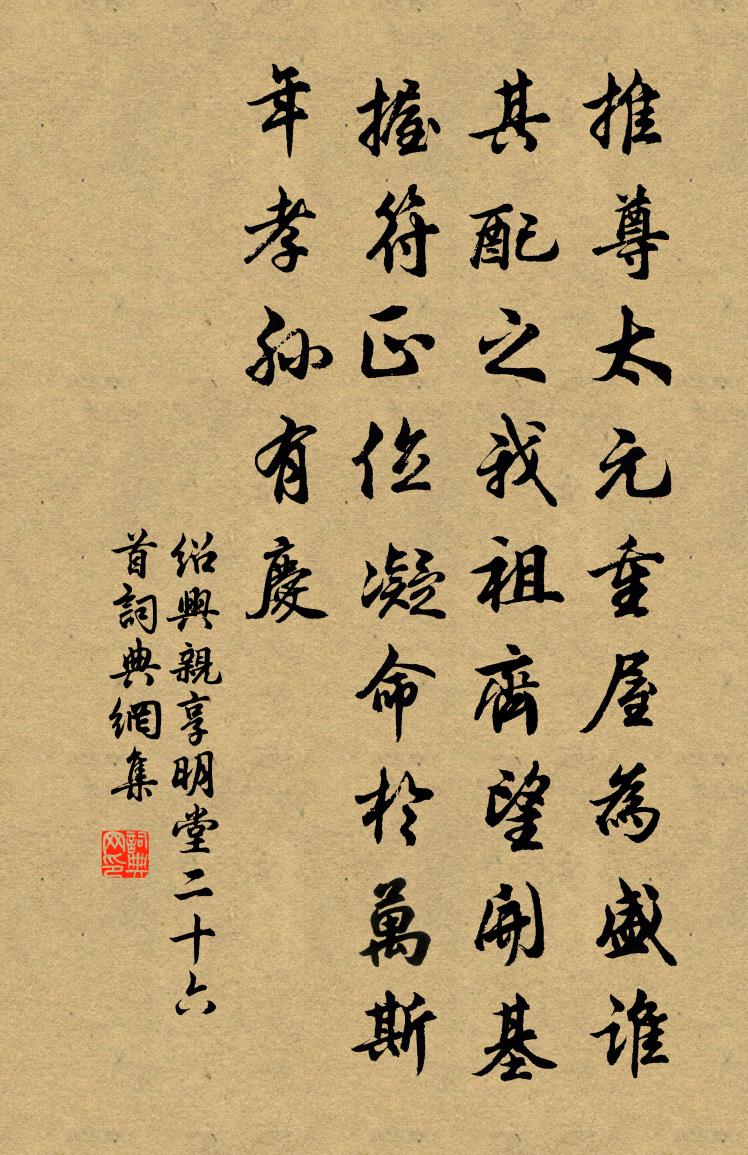 推尊太元重屋為盛誰
其配之我祖齊望開基
握符正位凝命於萬斯
年孝孫有慶
紹興親享明堂二十六
首詞典網集
詞典
网印